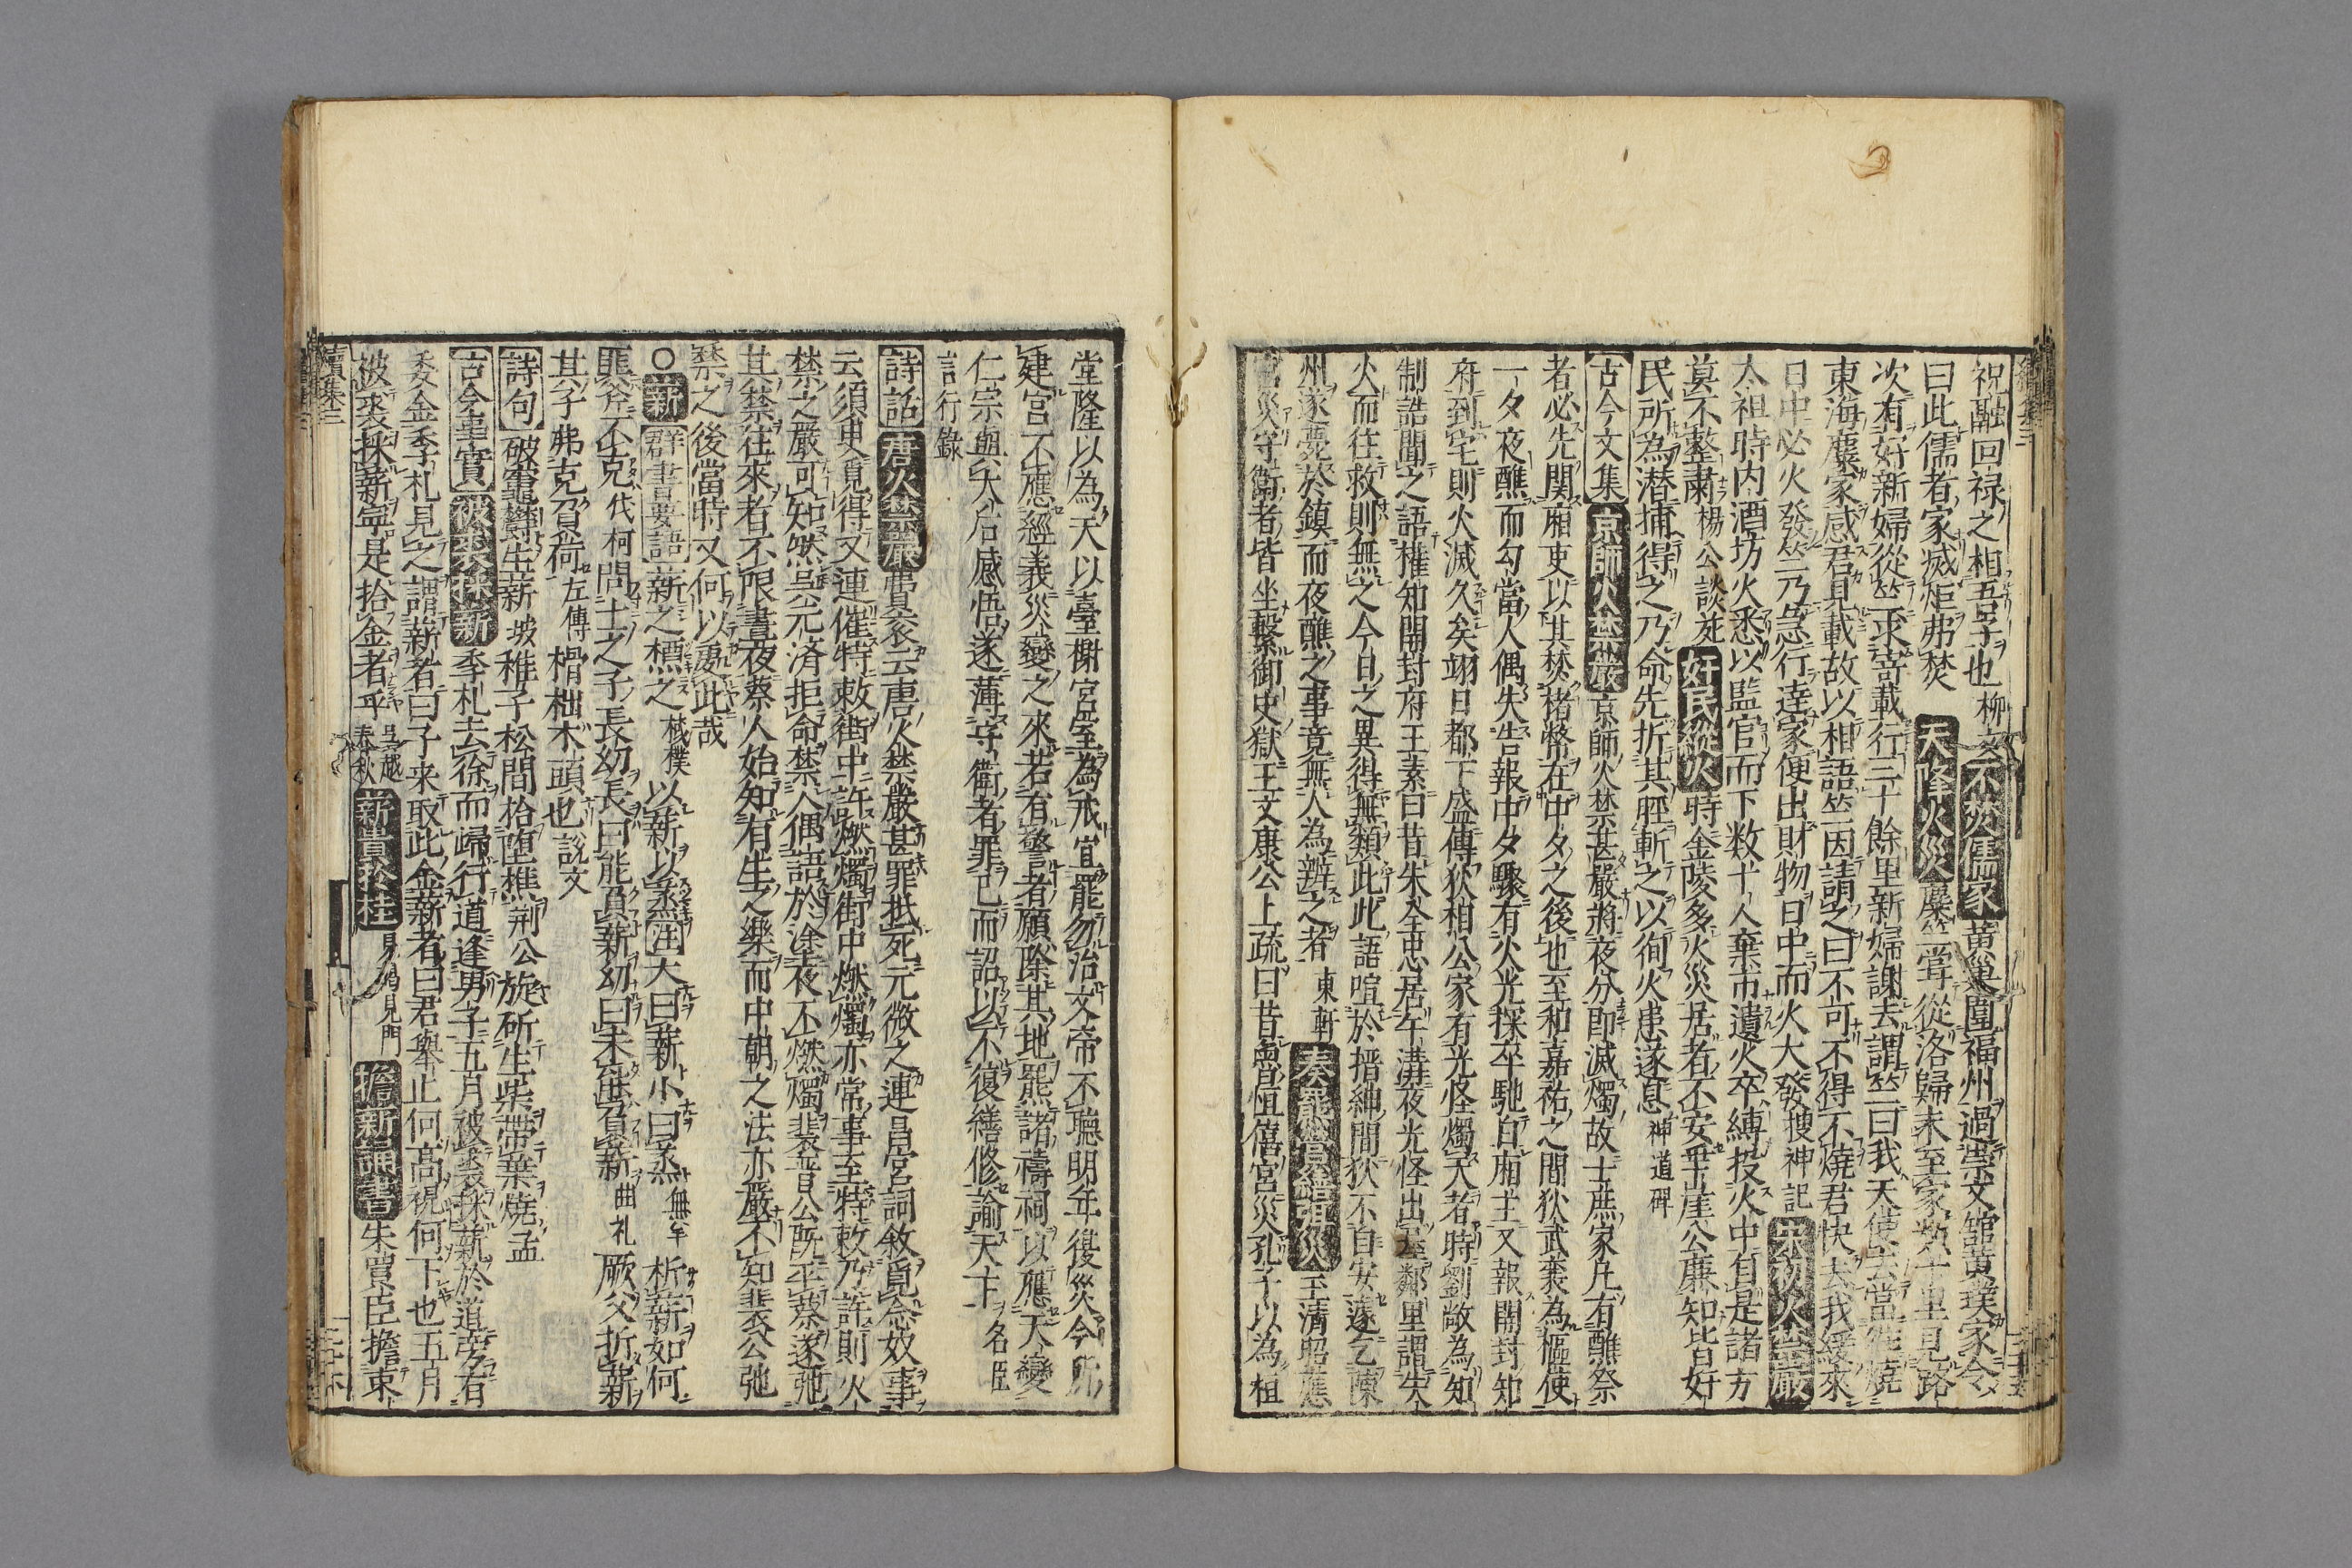 祝融回禄之相吾子也柳文不焚儒家黄巢圍福州過崇文館黄璞家令
曰此儒者家滅炬弗焚天降火災麋竺甞從洛歸未至家数十里見路
次有好新婦從竺求寄載行三十餘里新婦謝去謂竺曰我天使去當徃燒
東海麋家感君見載故以相語竺因請之曰不可不得不燒君快去我緩來
日中必火發竺乃急行逹家便出財物日中而火大發搜神記宋初火禁嚴
太祖時内酒坊火悉以監官而下数十人棄市遺火卒縛投火中自是諸方
莫不整肅楊公談苑奸民縱火時金陵多火災居者不安王崖公廉知皆奸
民所為潜捕得之乃命先折其脛斬之以徇火患遂息神道碑
古今文集京師火禁嚴京師火禁甚嚴將夜分即滅燭故士庶家凡有醮祭
者必先関廂吏以其焚楮幣在中夕之後也至和嘉祐之間狄武襄為樞使
一夕夜醮而勾當人偶失告報中夕驟有火光探卒馳白廂主又報開封知
府到宅則火滅久矣翊日都下盛傳狄相公家有光怪燭天者時劉敞為知
制誥聞之語權知開封府王素曰昔朱全忠居午溝夜光怪出屋鄰里謂失
火而往救則無之今日之異得無類此此語喧於搢紳間狄不自安遂乞陳
州遂薨於鎮而夜醮之事竟無人為辨之者東軒奏罷營繕弭災玉清昭應
宮災守衛者皆坐繫御史獄王文康公上疏曰昔魯桓僖宮災孔子以為桓
堂隆以為天以臺榭宮室為戒宜罷勿治文帝不聴明年復災今所
建宮不應經義災變之來若有警者願除其地罷諸禱祠以應天變
仁宗與太后感悟遂薄守衛者罪已而詔以不復繕修諭天下名臣
言行錄
詩話唐火禁嚴曹衮云唐火禁嚴甚罪抵死元微之連昌宮詞敘覓念奴事
云須臾覓得又連催特敕街中許燃燭街中燃燭亦常事至特敕乃許則火
禁之嚴可知然呉元済拒命禁人偶語於塗夜不燃燭裴晋公既平蔡遂弛
其禁往來者不限晝夜蔡人始知有生之樂而中朝之法亦嚴不知裴公弛
禁之後當時又何以處此哉
○薪群書要語薪之槱之棫樸以薪以蒸注大曰薪小曰蒸無羊析薪如何
匪斧不克伐柯問士之子長幼長曰能負薪幼曰未能負薪曲礼厥父折薪
其子弗克負荷左傳榾柮木頭也說文
詩句破竈欝生薪坡稚子松間拾堕樵荆公旋斫生柴帶葉燒孟
古今事實被裘採薪季札去徐而歸行道逢男子五月被裘採薪於道旁有
委金季札見之謂薪者曰子来取此金薪者曰君舉止何高視何下也五月
被裘採薪寧是拾金者乎呉越春秋薪貴於桂易得見門擔薪誦書朱買臣擔束